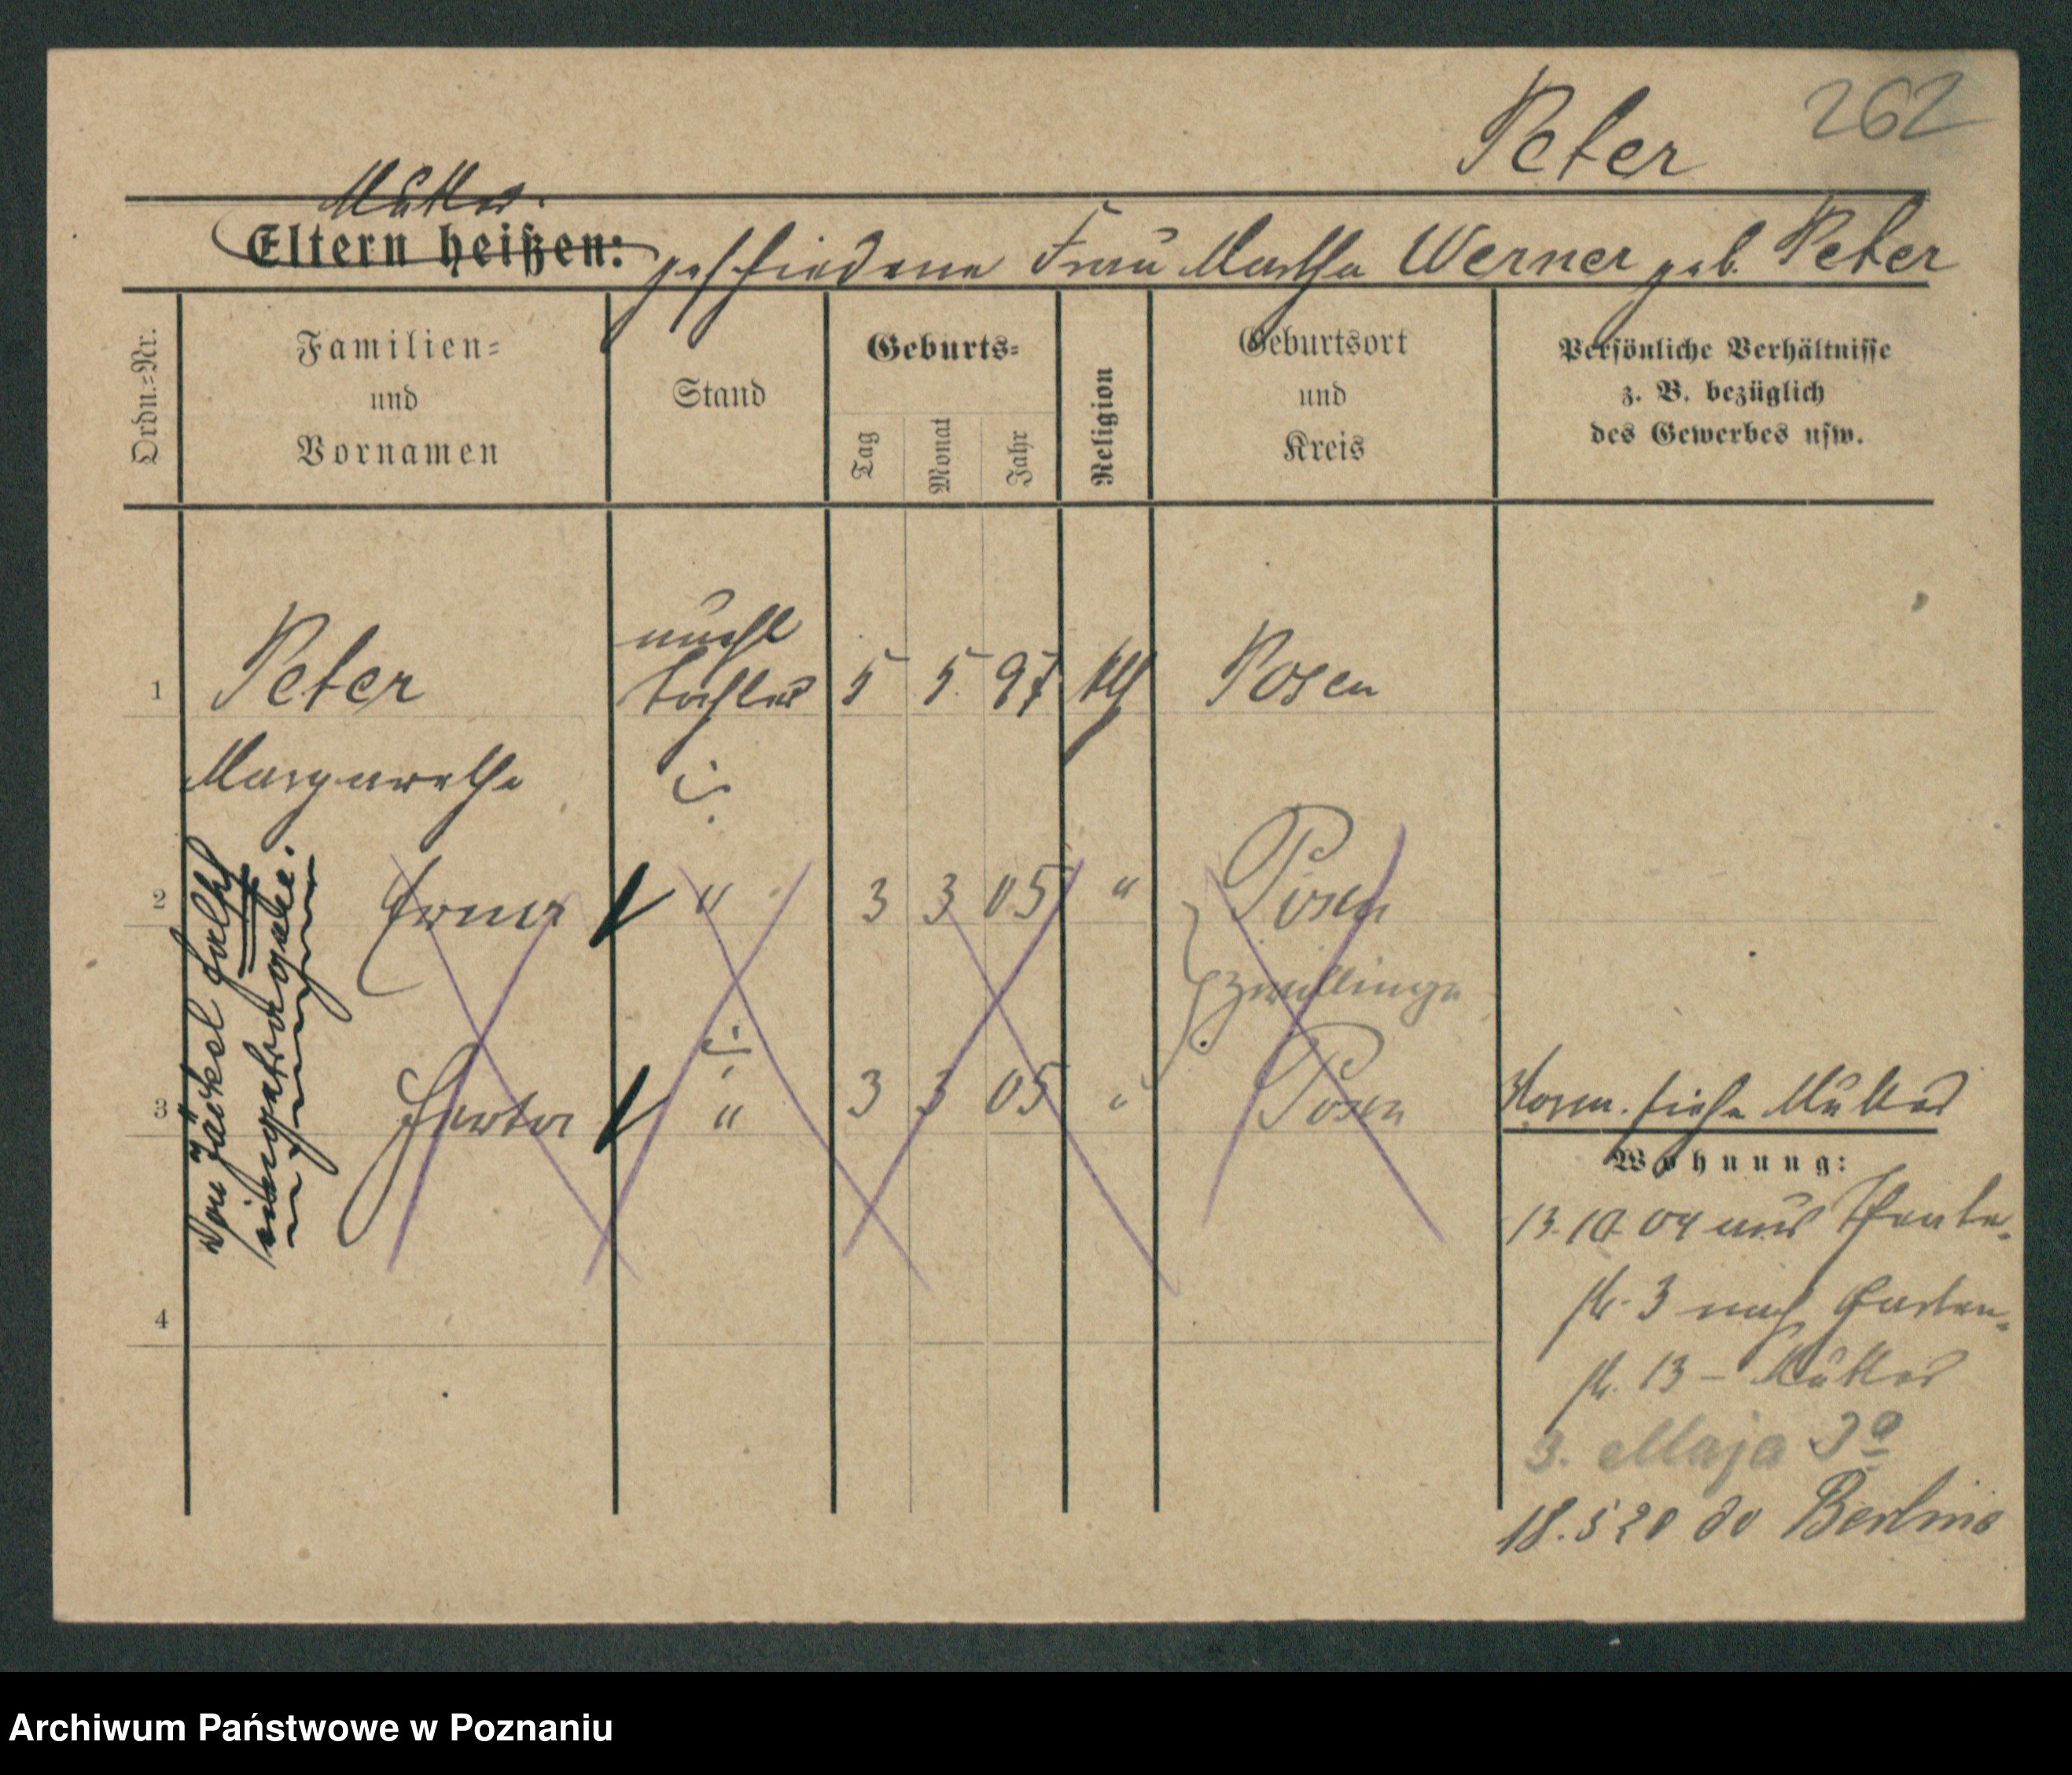 262
Peter
Mutter.
Eltern heißen: geschiedene Frau Martha Werner geb. Peter
Ordn.=Nr.
Familien=
und
Vornamen
Stand
Geburts=
Tag
Monat
Jahr
Religion
Geburtsort
und
Kreis
Persönliche Verhältnisse
z. B. bezüglich
des Gewerbes usw.
1 Peter unehl Tochter 5 5. 97 kth Posen
Margarethe
2 Erna " 3 3 05 " Posen
Zwillinge
3 Herta " 3 3 05 " Posen
Von Jäckel falsch
eingetragen.
4
Vorm. siehe Mutter
Wohnung:
13.10.04 aus
str. 3 nach Garten=
str. 13 – Mutter
3. Maja 3a
18.5 20 do Berlina
Archiwum Państwowe w Poznaniu